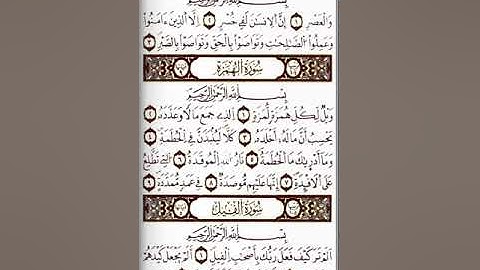 بِسْمِ اللَّهِ الرَّحْمَٰنِ الرَّحِيمِ
وَالْعَصْرِ ١ إِنَّ الْإِنسَانَ لَفِي خُسْرٍ ٢ إِلَّا الَّذِينَ ءَامَنُوا
وَعَمِلُوا الصَّالِحَاتِ وَتَوَاصَوْا بِالْحَقِّ وَتَوَاصَوْا بِالصَّبْرِ ٣
سُورَةُ الْهُمَزَةِ
بِسْمِ اللَّهِ الرَّحْمَٰنِ الرَّحِيمِ
وَيْلٌ لِّكُلِّ هُمَزَةٍ لُّمَزَةٍ ١ الَّذِي جَمَعَ مَالًا وَعَدَّدَهُ ٢
يَحْسَبُ أَنَّ مَالَهُ أَخْلَدَهُ ٣ كَلَّا لَيُنبَذَنَّ فِي الْحُطَمَةِ ٤
وَمَا أَدْرَاكَ مَا الْحُطَمَةُ ٥ نَارُ اللَّهِ الْمُوقَدَةُ ٦ الَّتِي تَطَّلِعُ
عَلَى الْأَفْئِدَةِ ٧ إِنَّهَا عَلَيْهِم مُّؤْصَدَةٌ ٨ فِي عَمَدٍ مُّمَدَّدَةٍ ٩
سُورَةُ الْفِيلِ
بِسْمِ اللَّهِ الرَّحْمَٰنِ الرَّحِيمِ
أَلَمْ تَرَ كَيْفَ فَعَلَ رَبُّكَ بِأَصْحَابِ الْفِيلِ ١ أَلَمْ يَجْعَلْ كَيْدَهُمْ